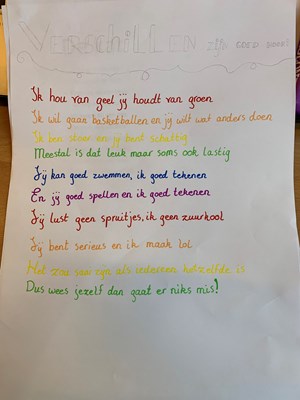 VERSCHILLEN zijn goed hoor!
Ik hou van geel jij houdt van groen
Ik wil gaan basketballen en jij wilt wat anders doen
Ik ben stoer en jij bent schattig
Meestal is dat leuk maar soms ook lastig
Jij kan goed zwemmen, ik goed tekenen
En jij goed spellen en ik goed tekenen
Jij lust geen spruitjes, ik geen zuurkool
Jij bent serieus en ik maak lol
Het zou saai zijn als iedereen hetzelfde is
Dus wees jezelf dan gaat er niks mis!